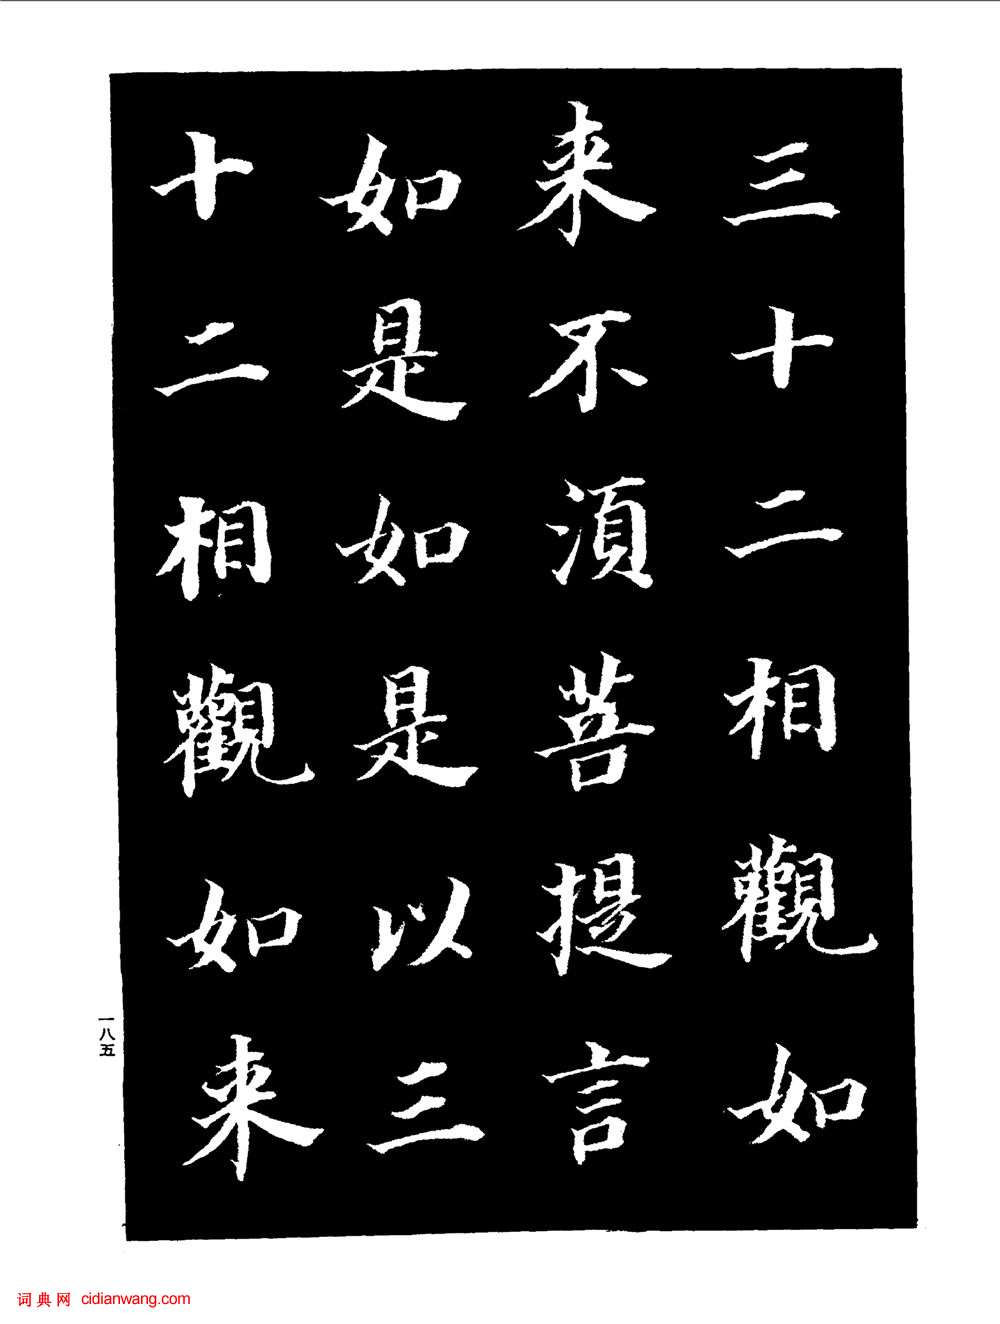 三十二相觀如
来不湏菩提言
如是如是以三
十二相觀如来
一八五
词典网 cidianwang.com